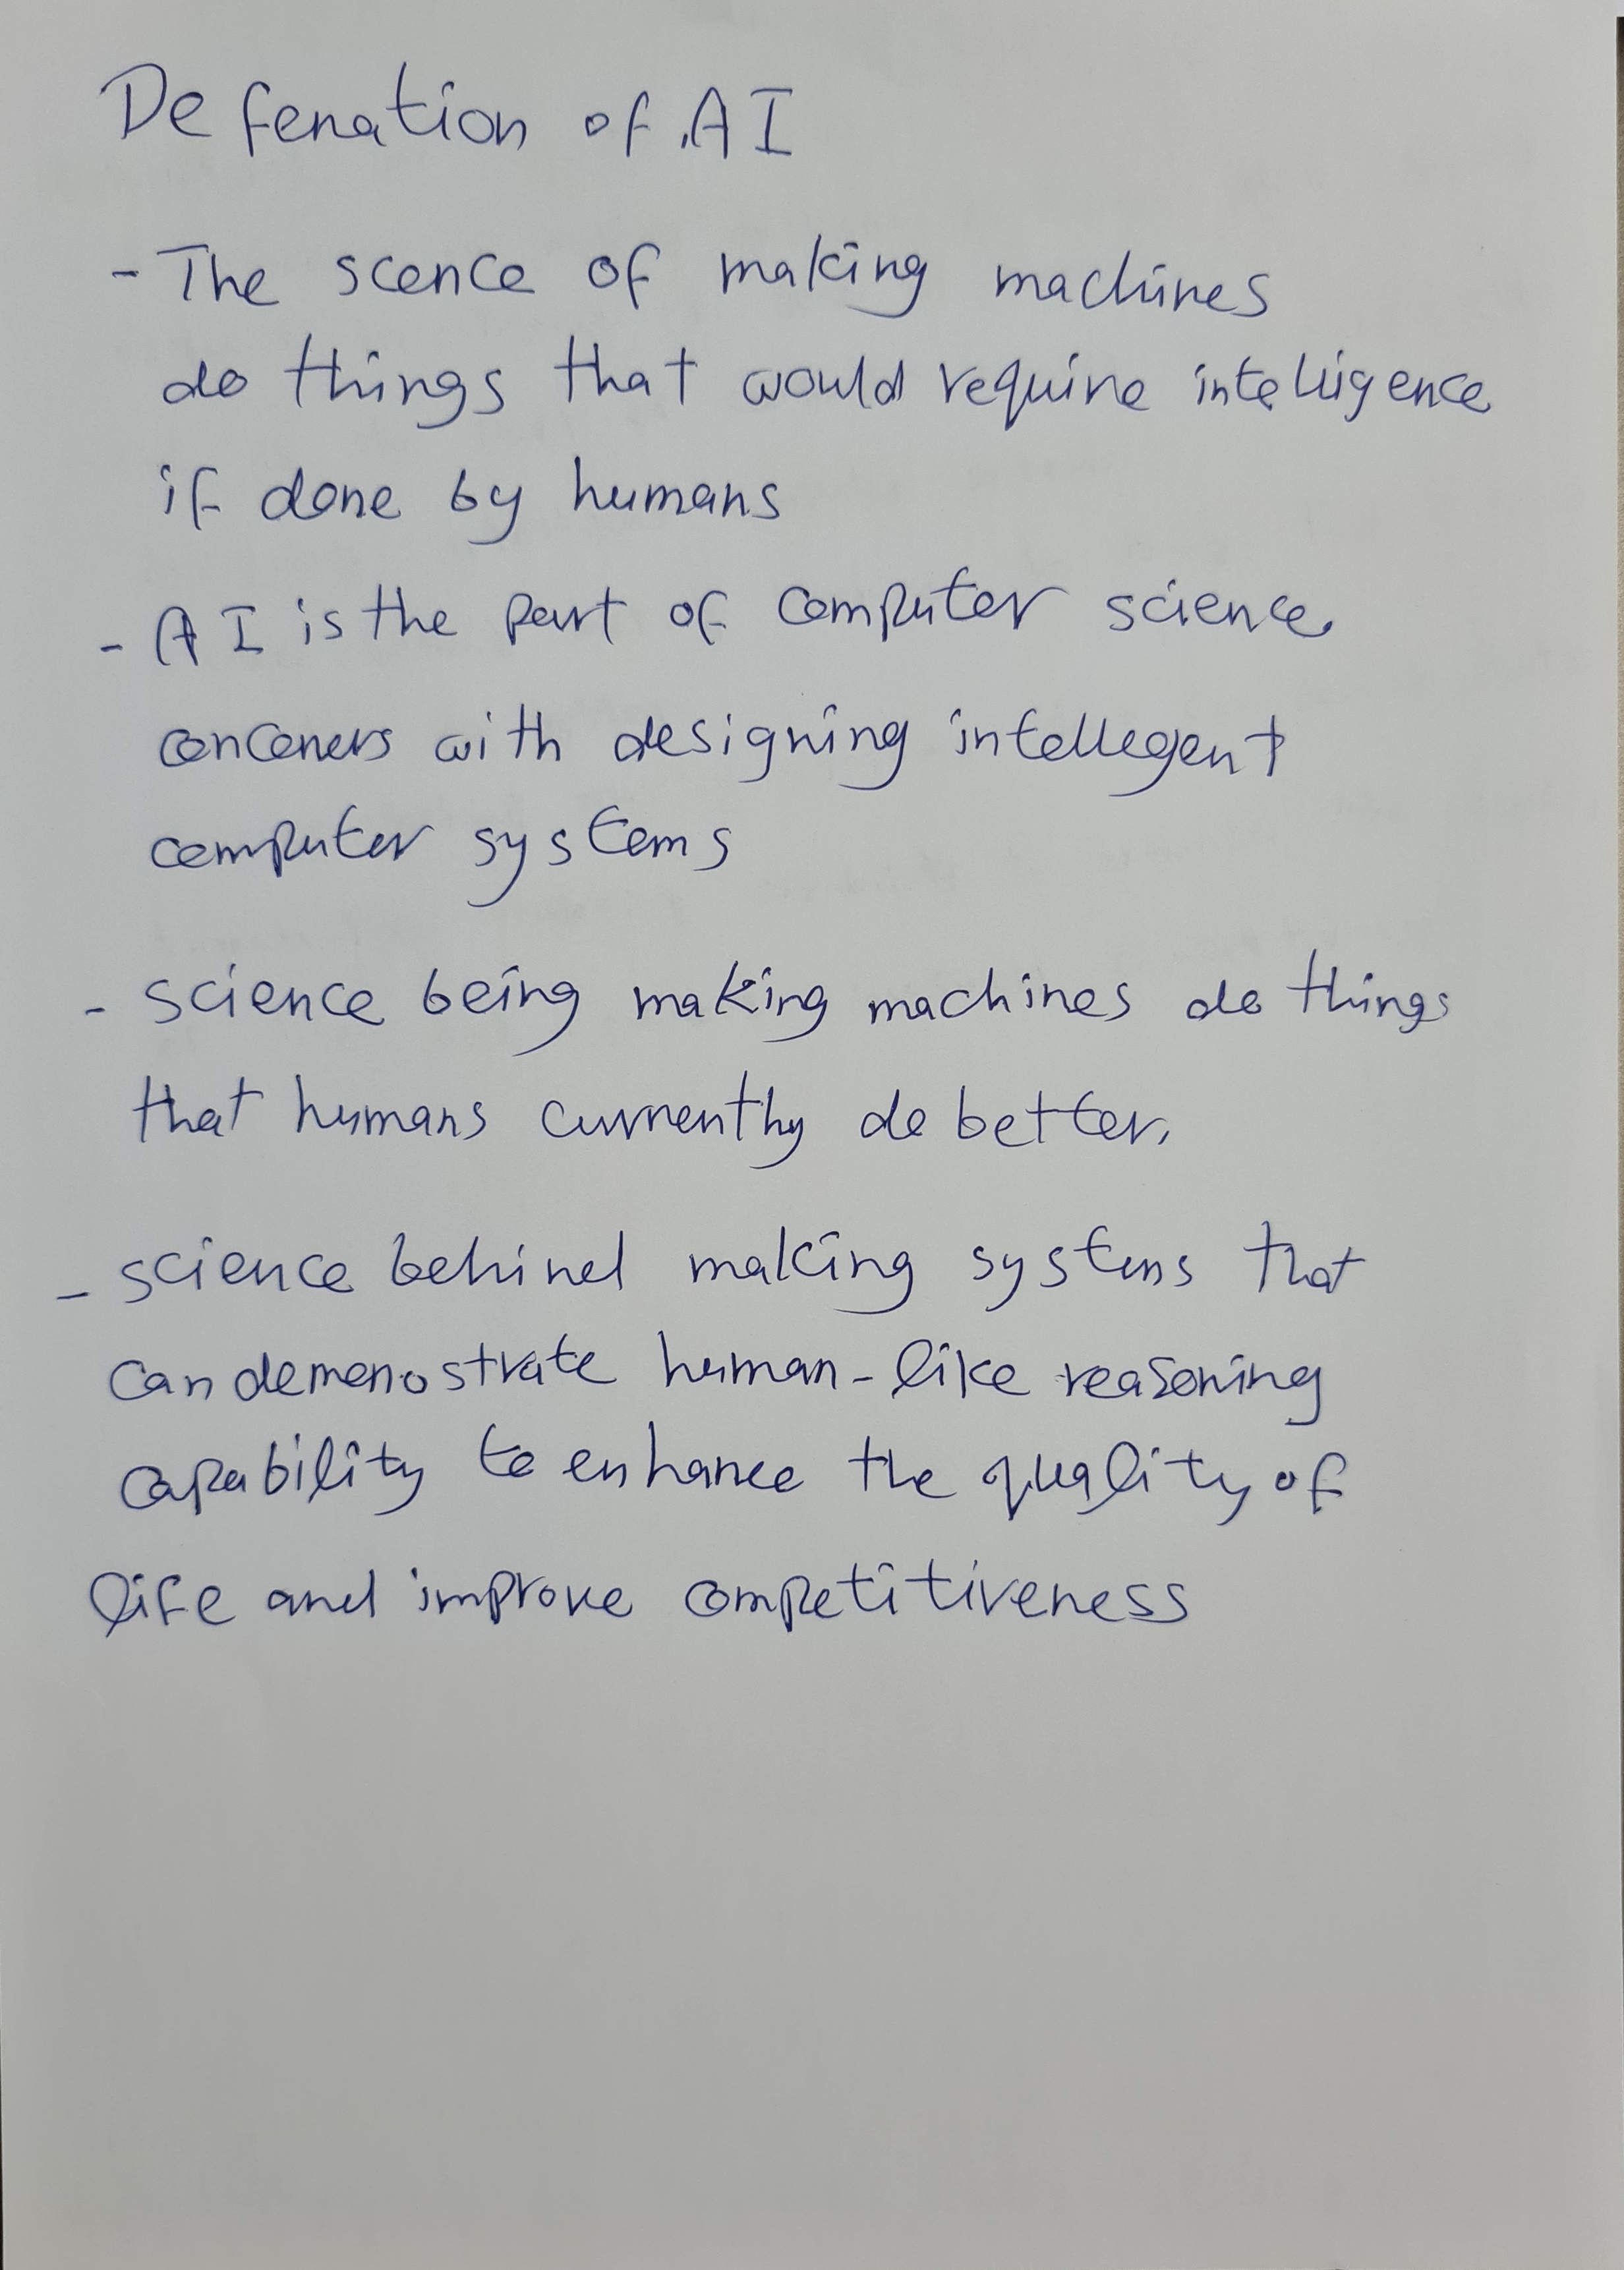 Defenation of AI
- The scence of making machines
do things that would require intelligence
if done by humans
- AI is the part of computer science
conceners with designing intellegent
computer systems
- science being making machines do things
that humans currently do better.
- science behind making systems that
can demenostrate human-like reasoning
capability to enhance the quality of
life and improve competitiveness